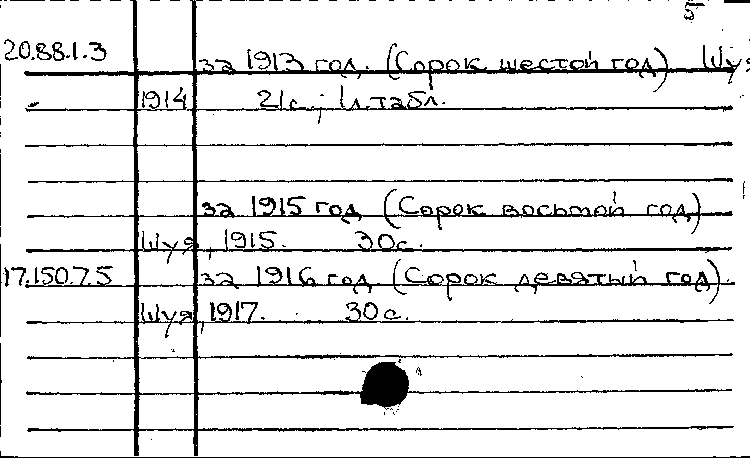 5
20.88.1.3 за 1913 год. (Сорок шестой год) Шу
1914 21с.; 1л.табл.
за 1915 год (Сорок восьмой год)
Шуя, 1915. 30с.
17.150.7.5 за 1916 год (Сорок девятый год).
Шуя, 1917. 30с.